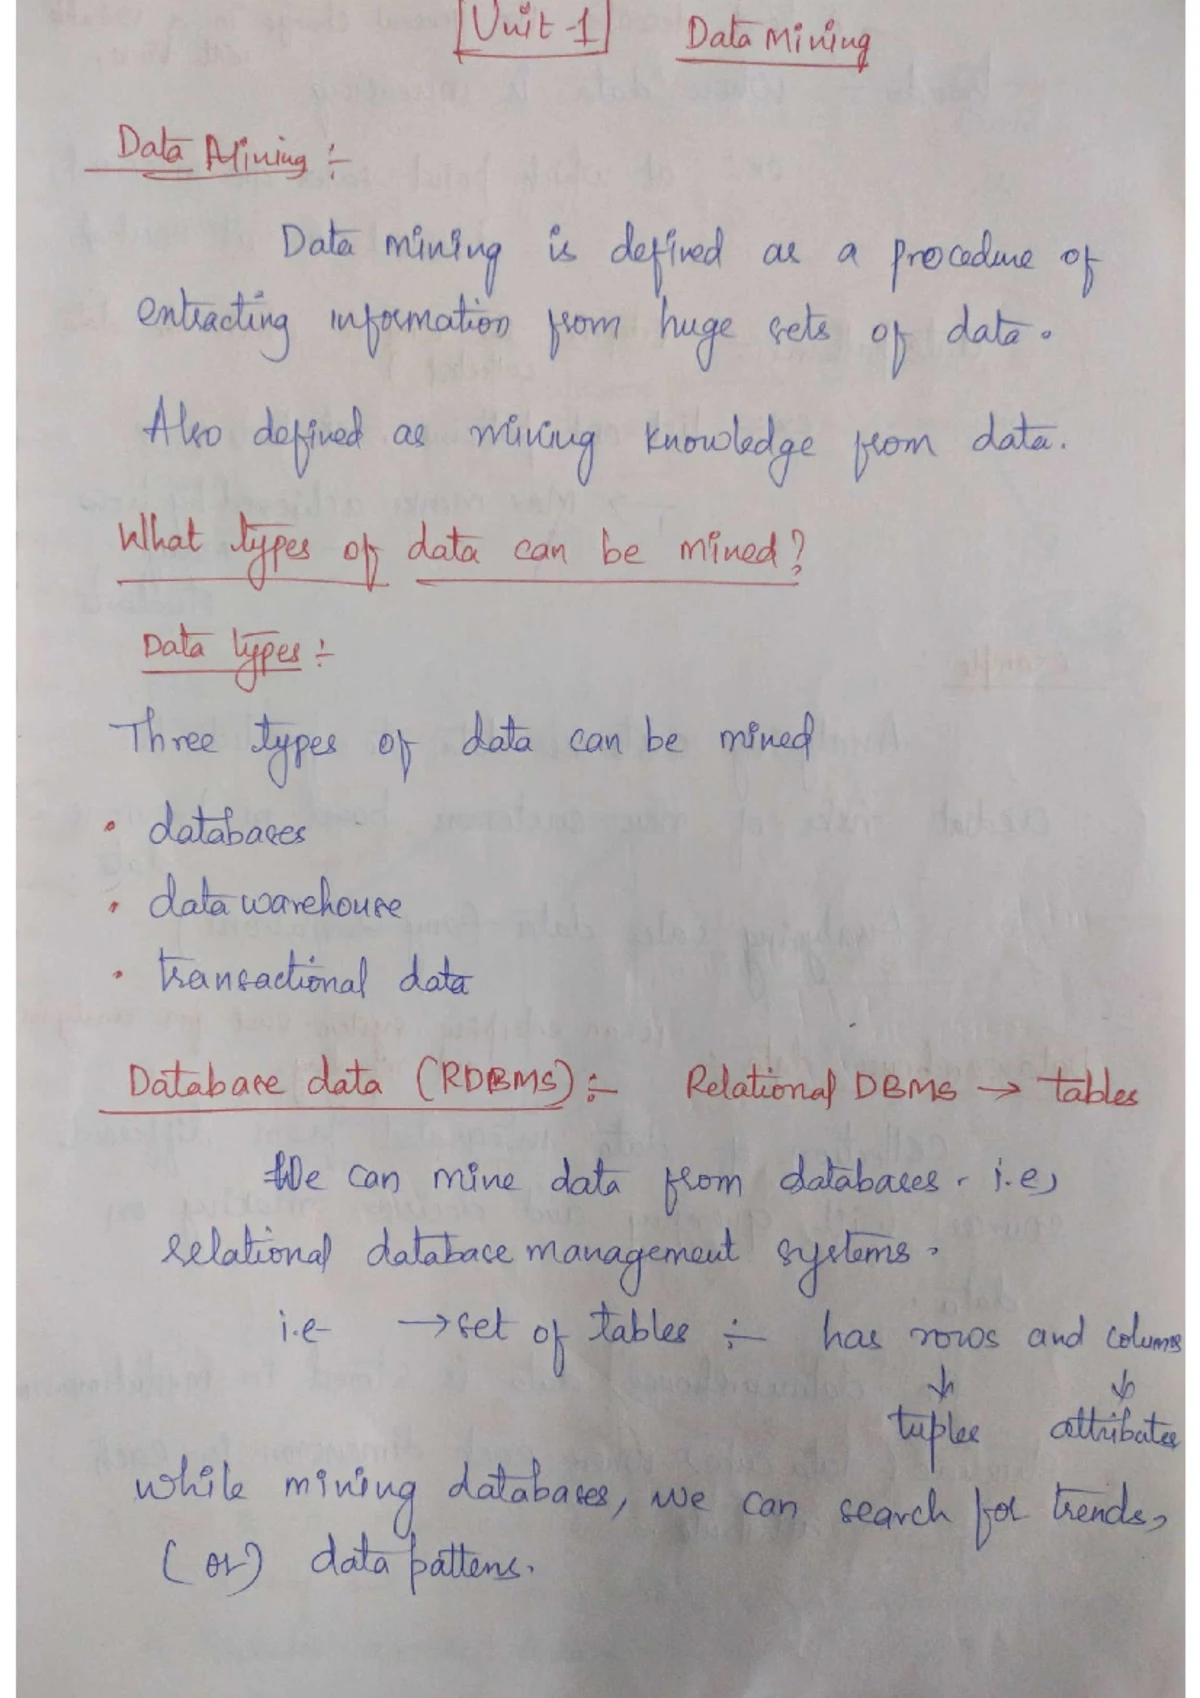 Unit-1 Data Mining
Data Mining :-
Data mining is defined as a procedure of
extracting information from huge sets of data.
Also defined as mining knowledge from data.
What types of data can be mined?
Data types :-
Three types of data can be mined
• databases
• data warehouse
• transactional data
Database data (RDBMS) :- Relational DBMS → tables
We can mine data from databases. i.e,
relational database management systems.
i.e → set of tables :- has rows and columns
↓ ↓
tuples attributes
while mining databases, we can search for trends,
(or) data pattens.